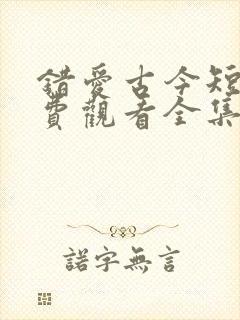 錯愛古今短
費觀看全集
諾字無言